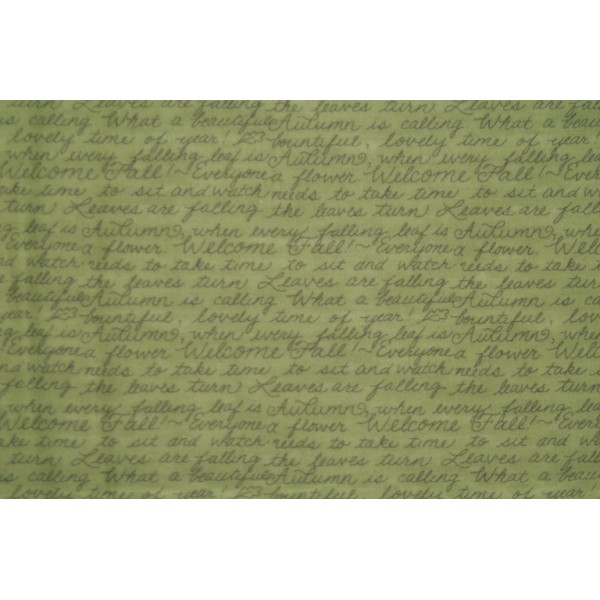 turn Leaves are falling the leaves turn Leaves are fa
is calling What a beautiful Autumn is calling What a beau
lovely time of year! bountiful, lovely time of year
when every falling leaf is Autumn, when every falling lea
Welcome Fall! ~ Everyone a flower Welcome Fall! ~ Everyo
take time to sit and watch needs to take time to sit and w
turn Leaves are falling the leaves turn Leaves are fall
g leaf is Autumn, when every falling leaf is Autumn, when
Everyone a flower Welcome Fall! ~ Everyone a flower Wel
and watch needs to take time to sit and watch needs to take
falling the leaves turn Leaves are falling the leaves
beautiful Autumn is calling What a beautiful Autumn is c
year! bountiful, lovely time of year! bountiful, lov
ng leaf is Autumn, when every falling leaf is Autumn, whe
Everyone a flower Welcome Fall! ~ Everyone a flower W
nd watch needs to take time to sit and watch needs to take
falling the leaves turn Leaves are falling the leaves turn
when every falling leaf is Autumn, when every falling lea
Welcome Fall! ~ Everyone a flower Welcome Fall! ~ Every
ake time to sit and watch needs to take time to sit and wa
turn Leaves are falling the leaves turn Leaves are fall
is calling What a beautiful Autumn is calling What a beau
lovely time of year! bountiful, lovely time of year!